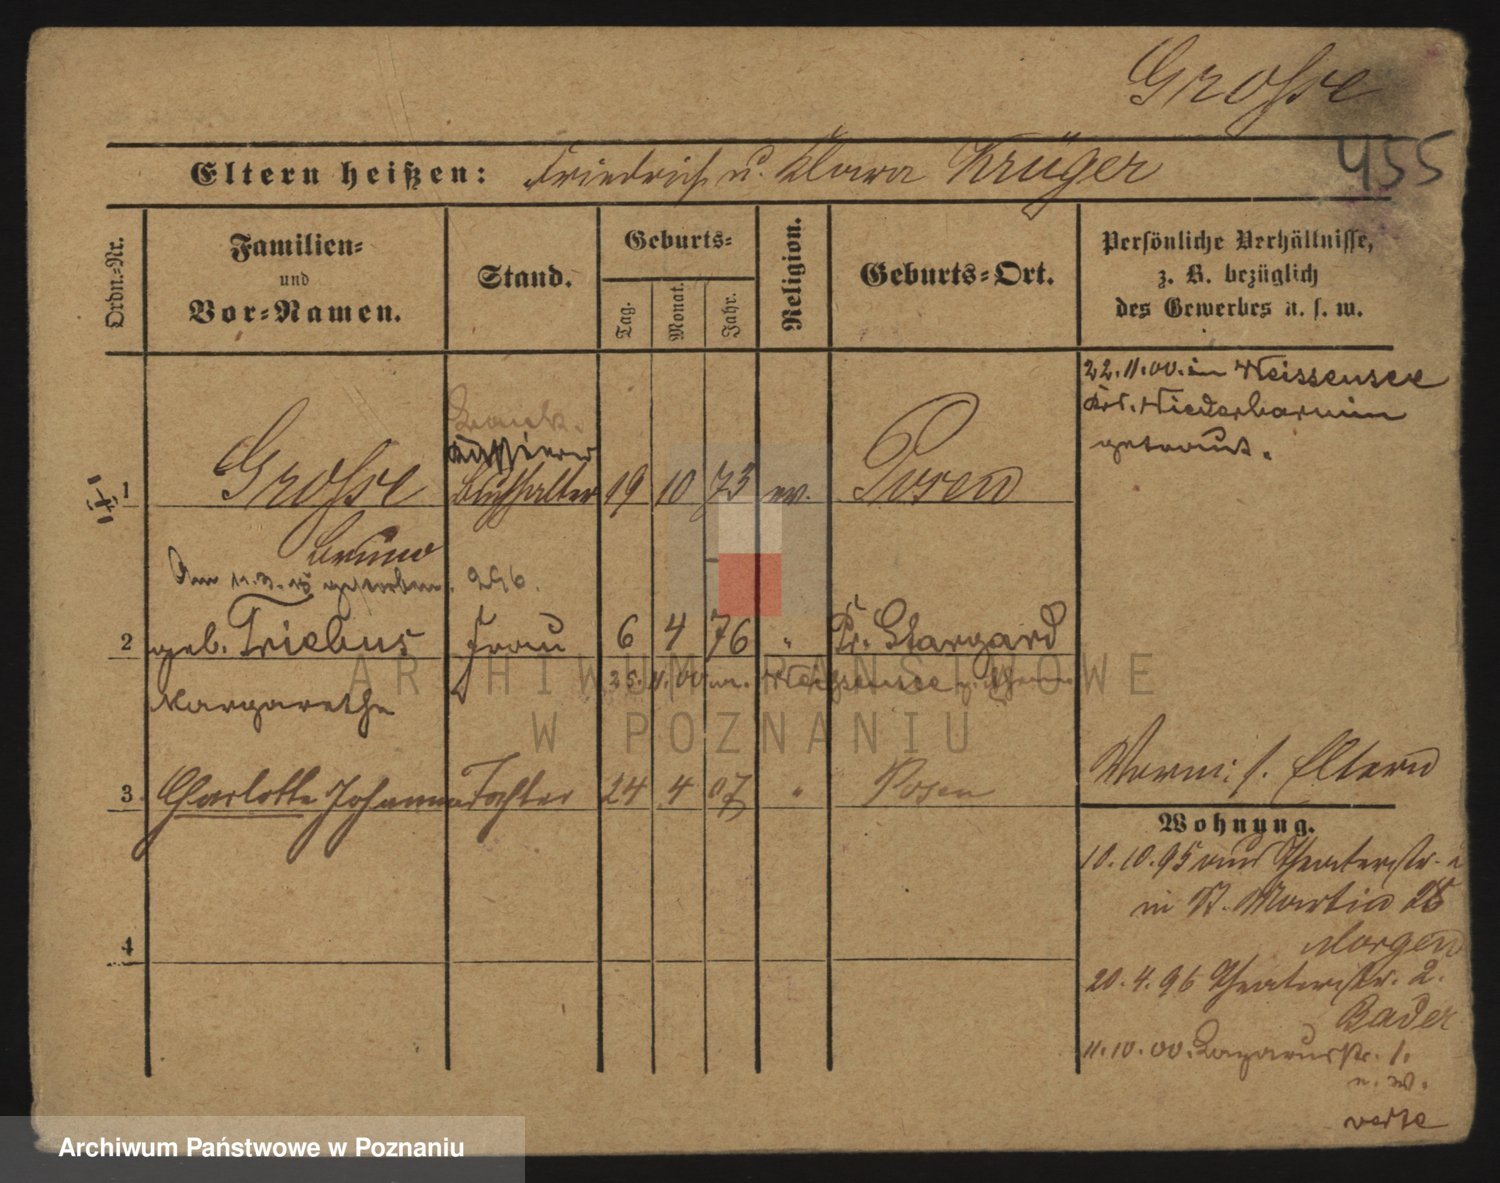 Grosse
455
Eltern heißen: Friedrich u. Klara Krüger
Ordn.-Nr.
Familien-
und
Vor-Namen.
Stand.
Geburts-
Tag.
Monat.
Jahr.
Religion.
Geburts-Ort.
Persönliche Verhältnisse,
z. B. bezüglich
des Gewerbes u. s. w.
22.11.00. in Weissensee
Krs. Niederbarnim
getraut.
Bank-
Kassierer
1 Grosse Buchhalter 19 10 73 ev. Posen
Bruno
Am gestorben. 296.
2 geb. Triebus Frau 6 4 76 " Pr. Stargard
Margarethe
25. 11. 00 Weissensee
3 Charlotte Johanna Tochter 24 4 07 " Posen
Eltern
4
Wohnung.
10.10.95 aus Theaterstr.
in St. Martin 28
Morgen
20.4.96 Theaterstr. 2.
Bader
11.10.00. Lazarusstr. 1.
verte
ARCHIWUM PAŃSTWOWE
W POZNANIU
Archiwum Państwowe w Poznaniu